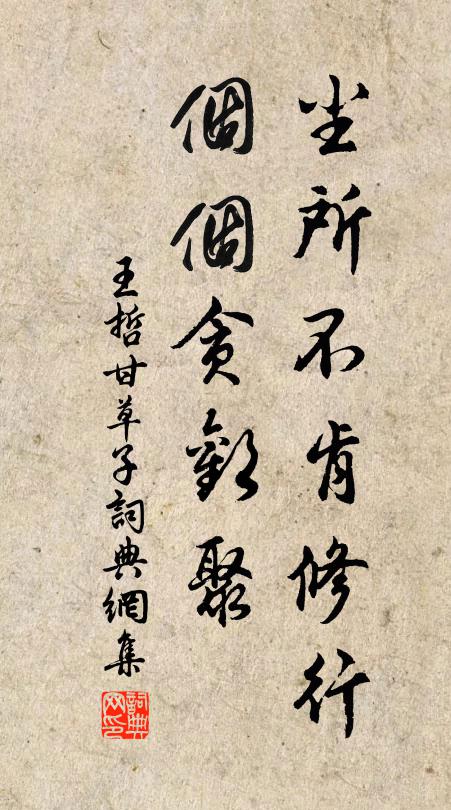 坐所不肯修行
個個貪歡聚
王哲甘草子詞典網集
詞典網印